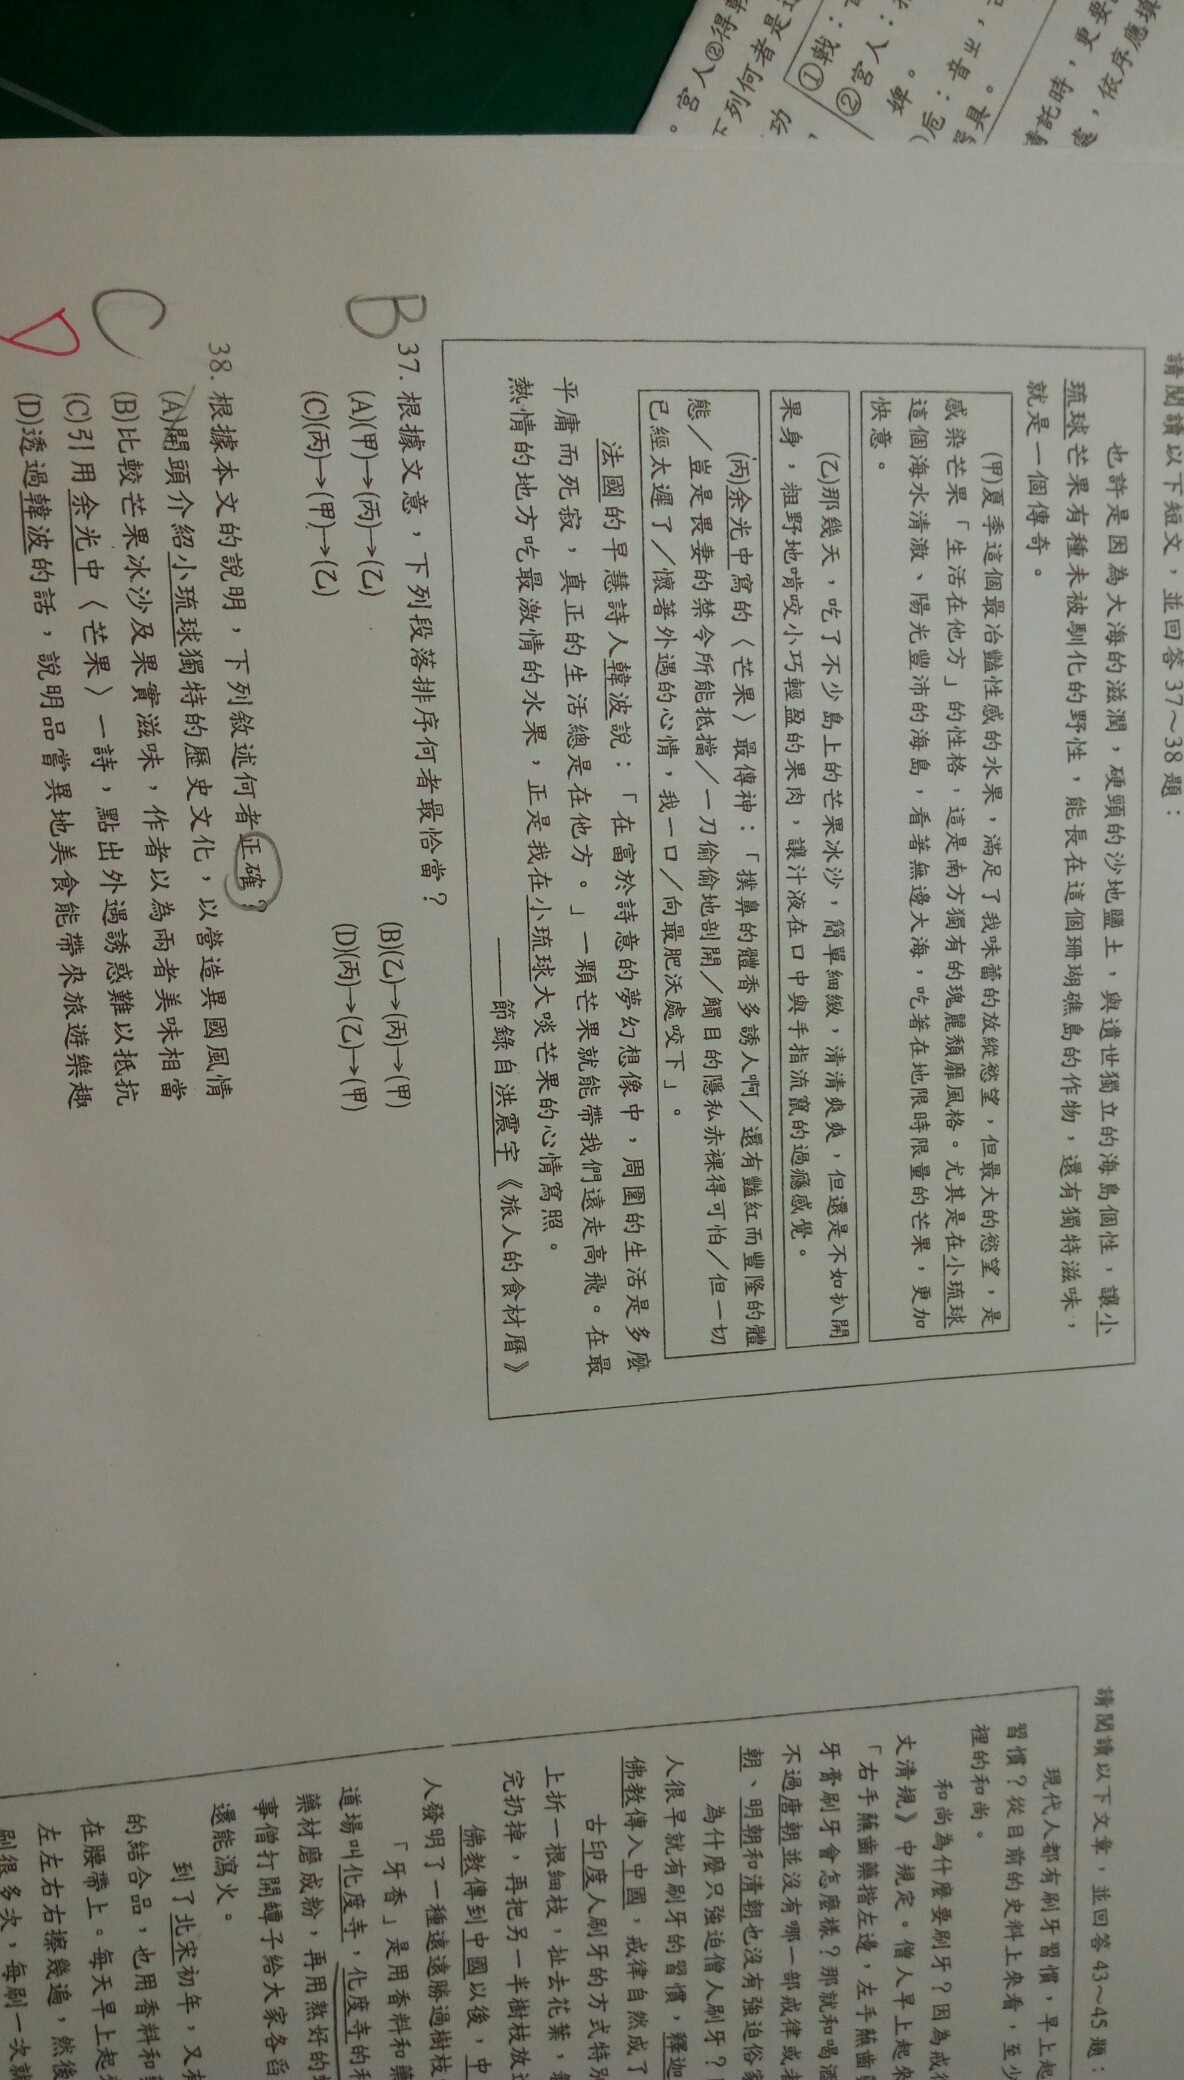 請閱讀以下短文，並回答37～38題：
也許是因為大海的滋潤，硬頸的沙地鹽土，與遺世獨立的海島個性，讓小
琉球芒果有種未被馴化的野性，能長在這個珊瑚礁島的作物，還有獨特滋味，
就是一個傳奇。
(甲)夏季這個最冶豔性感的水果，滿足了我味蕾的放縱慾望，但最大的慾望，是
感染芒果「生活在他方」的性格，這是南方獨有的瑰麗頹靡風格。尤其是在小琉球
這個海水清澈、陽光豐沛的海島，看著無邊大海，吃著在地限時限量的芒果，更加
快意。
(乙)那幾天，吃了不少島上的芒果冰沙，簡單細緻，清清爽爽，但還是不如扒開
果身，粗野地啃咬小巧輕盈的果肉，讓汁液在口中與手指流竄的過癮感覺。
(丙)余光中寫的〈芒果〉最傳神：「撲鼻的體香多誘人啊／還有豔紅而豐隆的體
態／豈是畏妻的禁令所能抵擋／一刀偷偷地剖開／觸目的隱私赤裸得可怕／但一切
已經太遲了／懷著外遇的心情，我一口／向最肥沃處咬下」。
法國的早慧詩人韓波說：「在富於詩意的夢幻想像中，周圍的生活是多麼
平庸而死寂，真正的生活總是在他方。」一顆芒果就能帶我們遠走高飛。在最
熱情的地方吃最激情的水果，正是我在小琉球大啖芒果的心情寫照。
——節錄自洪震宇《旅人的食材曆》
B
37. 根據文意，下列段落排序何者最恰當？
(A)(甲)→(丙)→(乙)
(B)(乙)→(丙)→(甲)
(C)(丙)→(甲)→(乙)
(D)(丙)→(乙)→(甲)
C
D
38. 根據本文的說明，下列敘述何者正確？
(A)開頭介紹小琉球獨特的歷史文化，以營造異國風情
(B)比較芒果冰沙及果實滋味，作者以為兩者美味相當
(C)引用余光中〈芒果〉一詩，點出外遇誘惑難以抵抗
(D)透過韓波的話，說明品嘗異地美食能帶來旅遊樂趣
請閱讀以下文章，並回答43～45題：
現代人都有刷牙習慣，早上起
習慣？從目前的史料上來看，至少
裡的和尚。
和尚為什麼要刷牙？因為戒律
丈清規》中規定。僧人早上起來
「右手蘸齒藥揩左邊，左手蘸齒
牙膏刷牙會怎麼樣？那就和喝酒
不過唐朝並沒有哪一部戒律或者
朝、明朝和清朝也沒有強迫俗家
為什麼只強迫僧人刷牙？
人很早就有刷牙的習慣，釋迦
佛教傳入中國，戒律自然成了
古印度人刷牙的方式特別
上折一根細枝，扯去花葉，
完扔掉，再把另一半樹枝放
佛教傳到中國以後，中
人發明了一種遠遠勝過樹枝
「牙香」是用香料和藥
道場叫化度寺，化度寺的和
藥材磨成粉，再用熬好的
事僧打開罈子給大家各舀
還能瀉火。
到了北宋初年，又有
的結合品，也用香料和
在腰帶上。每天早上起
左左右右擦幾遍，然後
刷很多次，每刷一次就